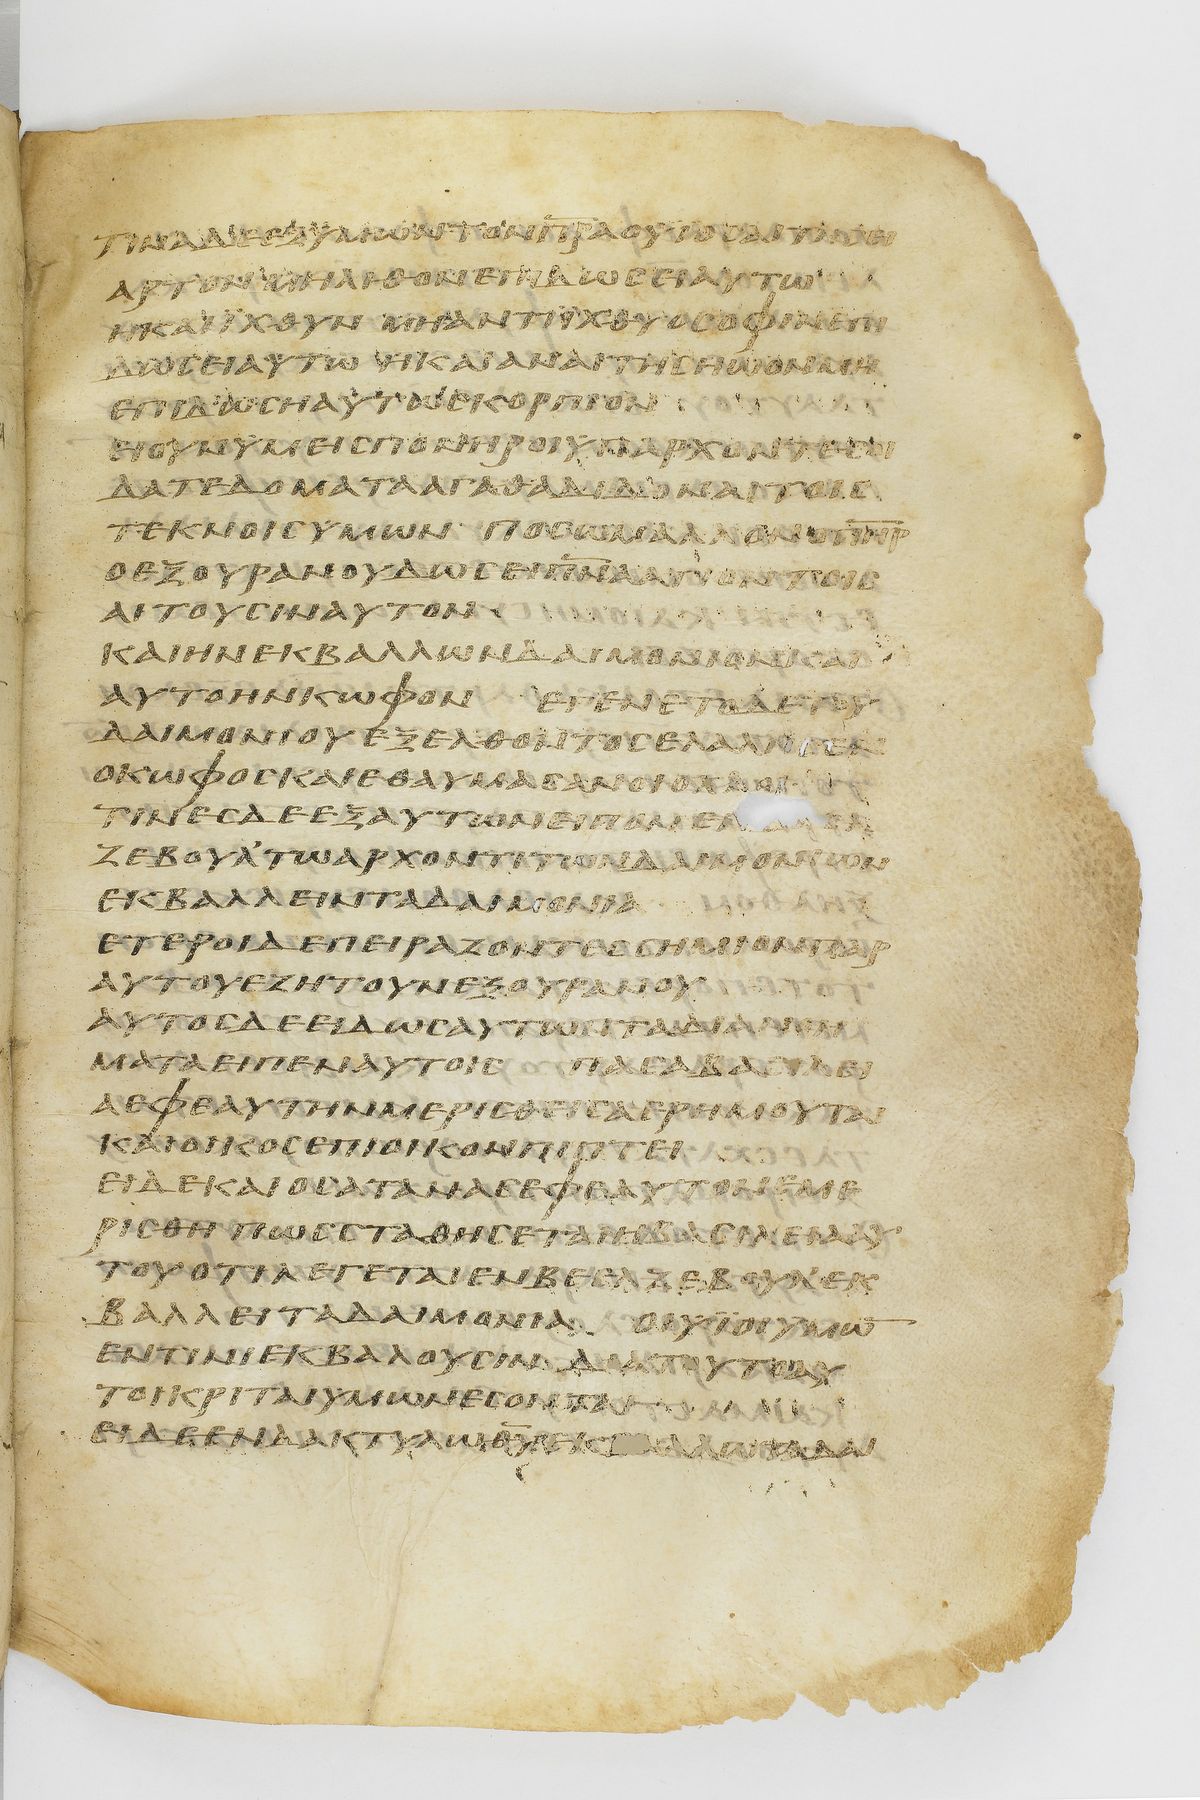 ΤΙΝΑΔΕΕΞΥΜΩΝΤΟΝΠΡΑΟΥΙΟΣΑΙΤΗΣΕΙ
ΑΡΤΟΝΜΗΛΙΘΟΝΕΠΙΔΩΣΕΙΑΥΤΩ
ΗΚΑΙΙΧΘΥΝ ΜΗΑΝΤΙΙΧΘΥΟΣΟΦΙΝΕΠΙ
ΔΩΣΕΙΑΥΤΩ ΗΚΑΙΑΝΑΙΤΗΣΗΩΟΝΜΗ
ΕΠΙΔΩΣΗΑΥΤΩΣΚΟΡΠΙΟΝ
ΕΙΟΥΝΥΜΕΙΣΠΟΝΗΡΟΙΥΠΑΡΧΟΝΤΕΣΟΙ
ΔΑΤΕΔΟΜΑΤΑΑΓΑΘΑΔΙΔΟΝΑΙΤΟΙΣ
ΤΕΚΝΟΙΣΥΜΩΝ ΠΟΣΩΜΑΛΛΟΝΟΠΗΡ
ΟΕΞΟΥΡΑΝΟΥΔΩΣΕΙΠΝΑΑΓΙΟΝΤΟΙΣ
ΑΙΤΟΥΣΙΝΑΥΤΟΝ
ΚΑΙΗΝΕΚΒΑΛΛΩΝΔΑΙΜΟΝΙΟΝΚΑΙ
ΑΥΤΟΗΝΚΩΦΟΝ ΕΓΕΝΕΤΟΔΕΤΟΥ
ΔΑΙΜΟΝΙΟΥΕΞΕΛΘΟΝΤΟΣΕΛΑΛΗΣΕΝ
ΟΚΩΦΟΣΚΑΙΕΘΑΥΜΑΣΑΝΟΙΟΧΛΟΙ
ΤΙΝΕΣΔΕΕΞΑΥΤΩΝΕΙΠΟΝΕΝ
ΖΕΒΟΥΛΤΩΑΡΧΟΝΤΙΤΩΝΔΑΙΜΟΝΙΩΝ
ΕΚΒΑΛΛΕΙΝΤΑΔΑΙΜΟΝΙΑ
ΕΤΕΡΟΙΔΕΠΕΙΡΑΖΟΝΤΕΣΣΗΜΙΟΝΠΑΡ
ΑΥΤΟΥΕΖΗΤΟΥΝΕΞΟΥΡΑΝΟΥ
ΑΥΤΟΣΔΕΕΙΔΩΣΑΥΤΩΝΤΑΔΙΑΝΟΗ
ΜΑΤΑΕΙΠΕΝΑΥΤΟΙΣ ΠΑΣΑΒΑΣΙΛΕΙ
ΑΕΦΕΑΥΤΗΝΜΕΡΙΣΘΕΙΣΑΕΡΗΜΟΥΤΑΙ
ΚΑΙΟΙΚΟΣΕΠΙΟΙΚΟΝΠΙΠΤΕΙ
ΕΙΔΕΚΑΙΟΣΑΤΑΝΑΣΕΦΕΑΥΤΟΝΕΜΕ
ΡΙΣΘΗ ΠΩΣΣΤΑΘΗΣΕΤΑΙΗΒΑΣΙΛΕΙΑΑΥ
ΤΟΥ ΟΤΙΛΕΓΕΤΑΙΕΝΒΕΕΛΖΕΒΟΥΛΕΚ
ΒΑΛΛΕΙΤΑΔΑΙΜΟΝΙΑ ΟΙΥΙΟΙΥΜΩ
ΕΝΤΙΝΙΕΚΒΑΛΟΥΣΙΝ ΔΙΑΤΟΥΤΟΑΥ
ΤΟΙΚΡΙΤΑΙΥΜΩΝΕΣΟΝΤΑΙ
ΕΙΔΕΕΝΔΑΚΤΥΛΩΘΥ